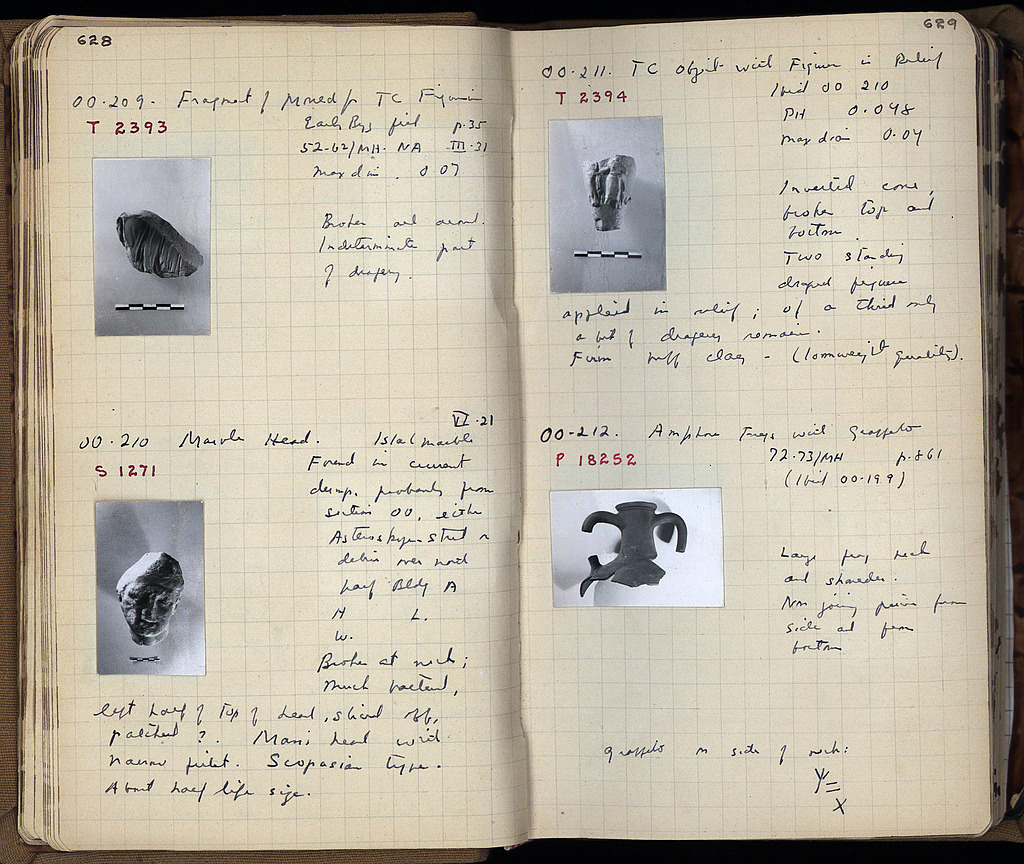 628
OO·209. Fragment of
T 2393
Early Byz fill p.35
52-62/MH-NA III·31
max dim. 0.07
Broken all around.
Indeterminate part
of drapery.
VI·21
OO·210 Marble Head. Island marble
S 1271
Found in current
dump, probably from
section OO, either
debris over north
half Bldg A
H L.
W.
Broken at neck;
much battered,
left half of top of head, sliced off,
patched ?. Man's head with
narrow fillet. Scopasian type.
About half life size.
629
OO·211. TC object with Figures in Relief
T 2394
Ibid OO 210
PH 0.048
max dim 0.04
Inverted cone,
broken top and
bottom.
Two standing
draped figures
applied in relief; of a third only
a bit of drapery remains.
Firm buff clay - (
quality).
OO-212. Amphora Frags with Graffito
P 18252
72·73/MH p.861
(Ibid OO·199)
Large frag neck
and shoulder.
Non joining pieces from
side and from
bottom
graffito on side of neck: